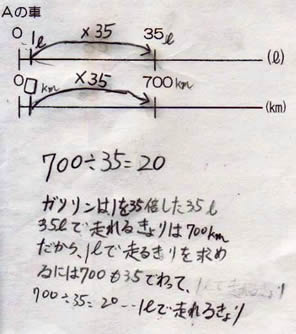 Aの車
0 1ℓ ×35 35ℓ
(ℓ)
0 □km ×35 700km
(km)
700÷35=20
ガソリンは1を35倍した35ℓ
35ℓで走れるきょりは700km
だから、1ℓで走るきりを求め
るには700も35でわって、1ℓで走れるきょり
700÷35=20…1ℓで走れるきょり